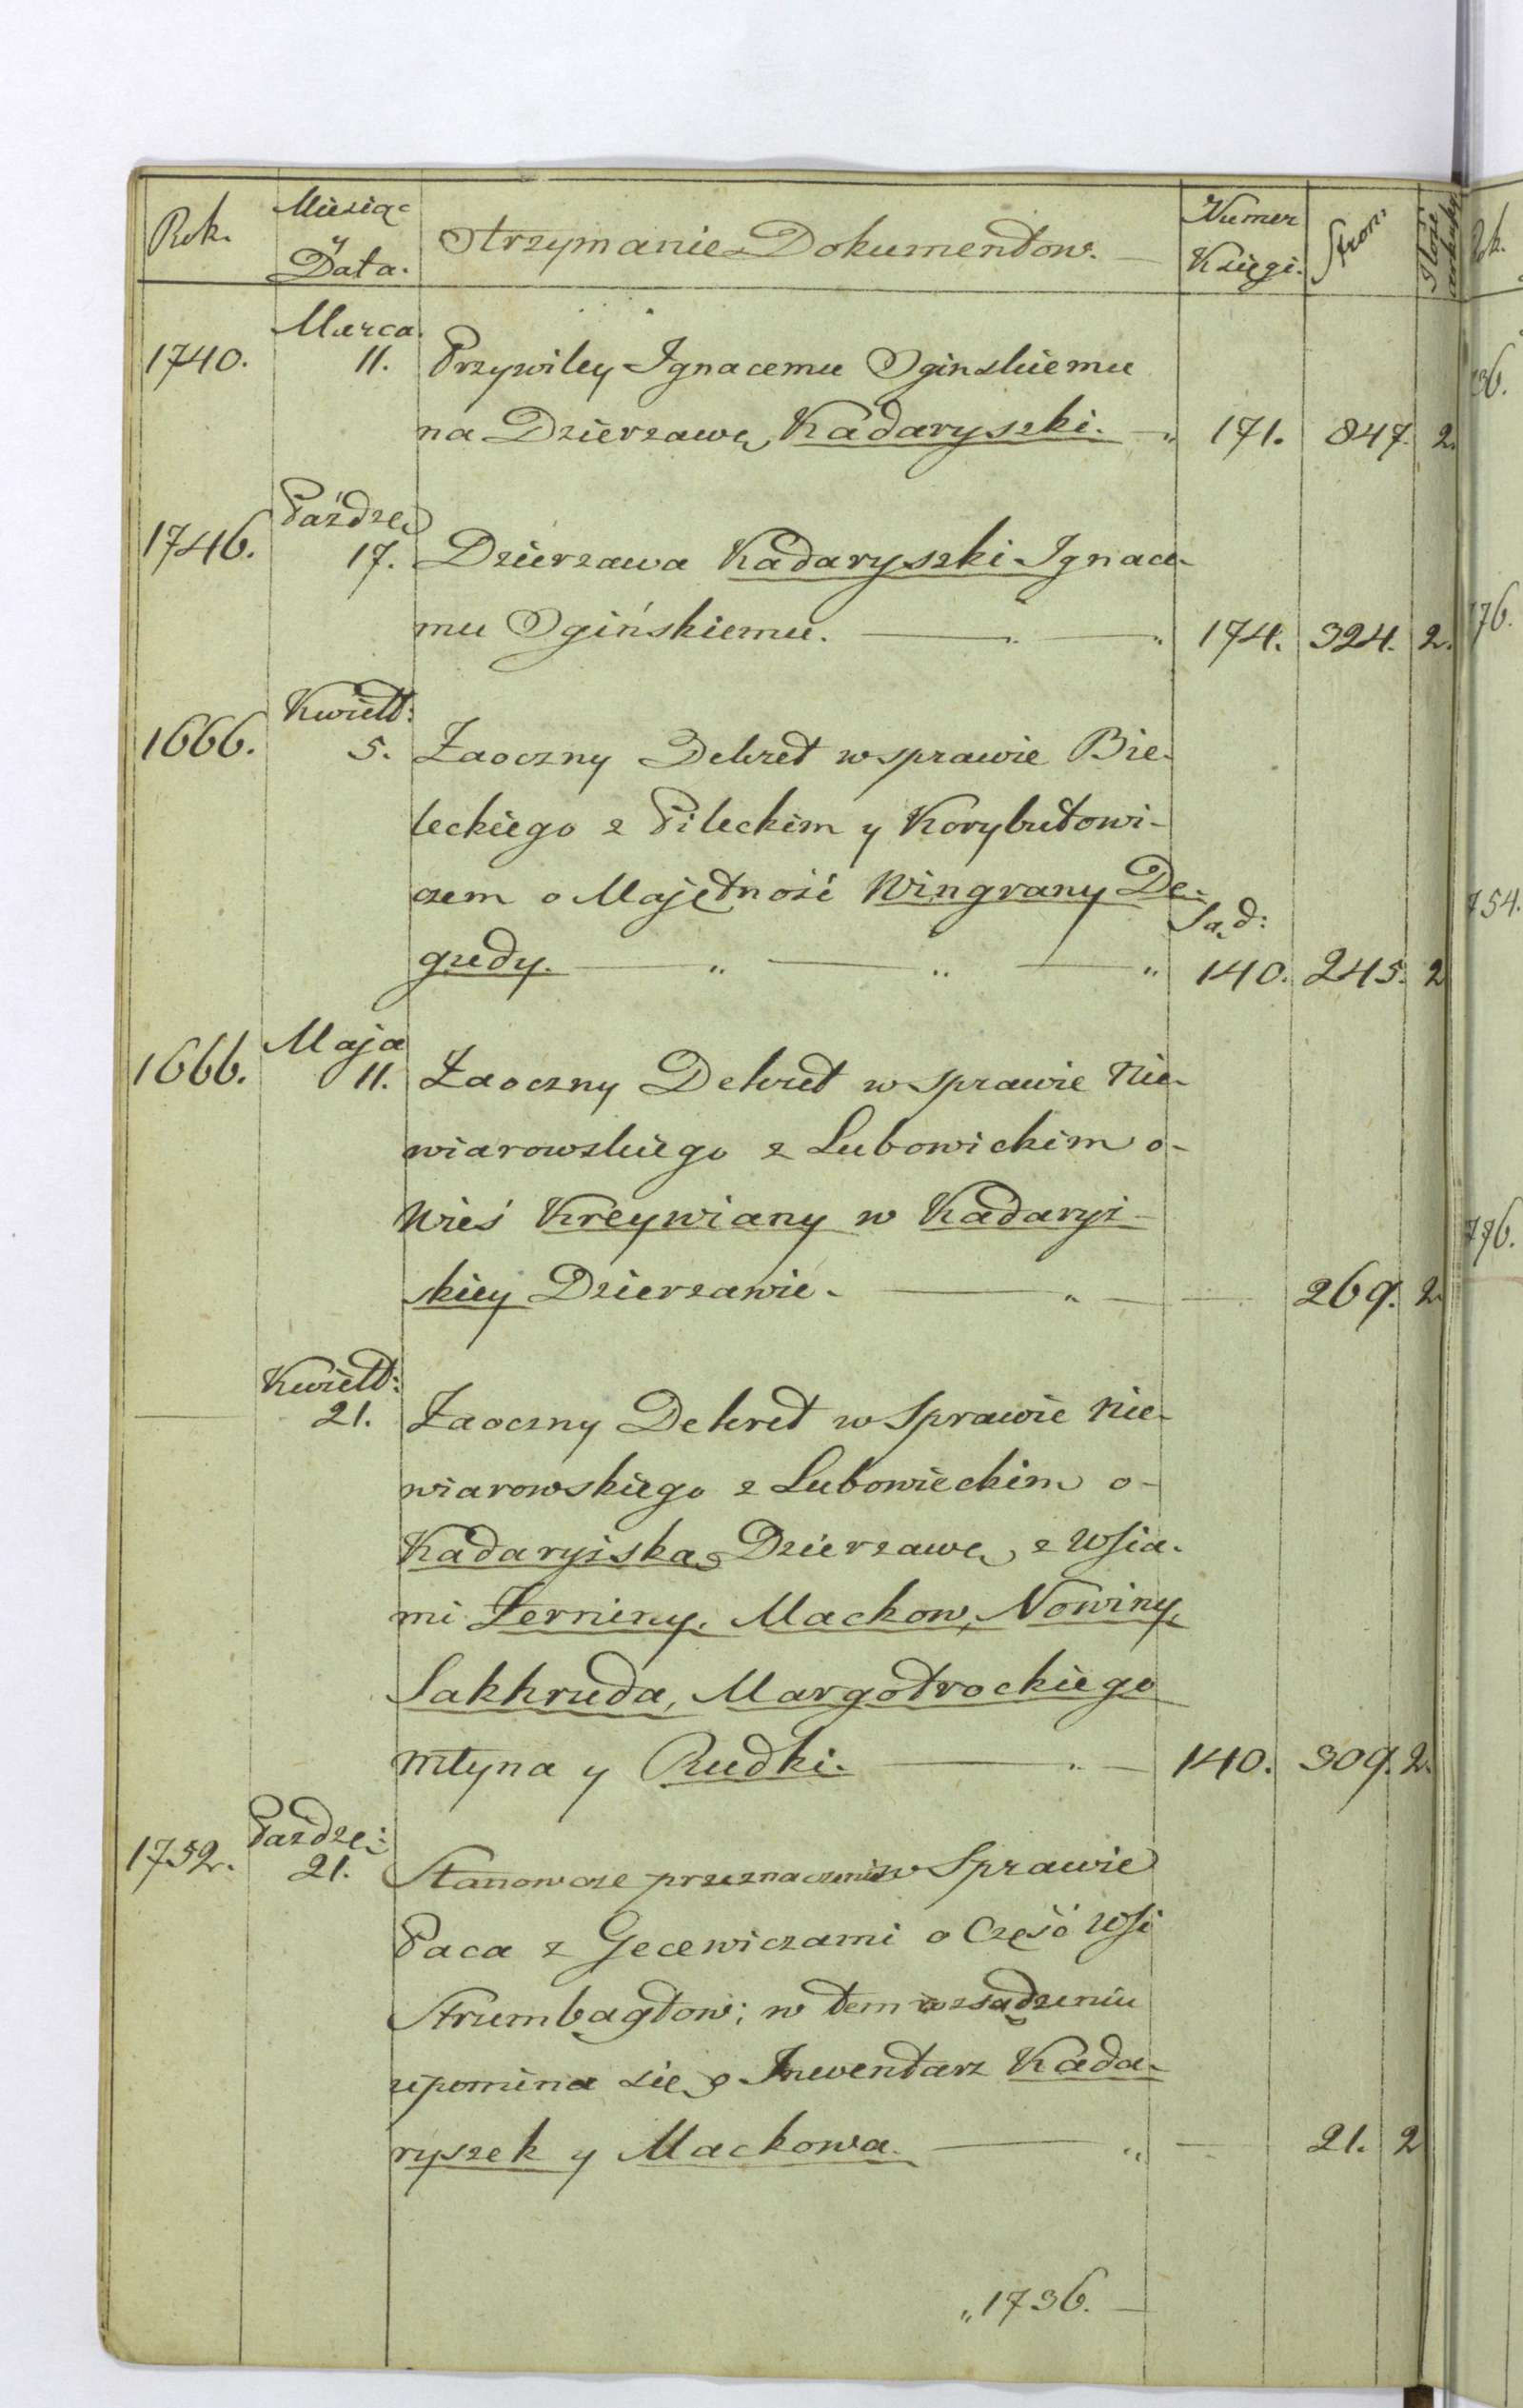 Rok. Miesiąc y Data. Otrzymanie Dokumentow. Numer Księgi. Stron: Ilość arkuszy
Marca
1740. 11. Przywiley Ignacemu Oginskiemu
na Dzierzawę Kadaryszki. — „ 171. 847. 2.
Paździe
1746. 17. Dzierzawa Kadaryszki Ignace-
mu Ogińskiemu. — „ — „ 174. 324. 2.
Kwiet:
1666. 5. Zaoczny Dekret w sprawie Bie-
leckiego z Pileckim y Korybutowi-
czem o Majętność Wingrany De-
Sąd:
gudy. — „ — „ — „ 140. 245. 2
Maja
1666. 11. Zaoczny Dekret w sprawie Nie-
wiarowskiego z Lubowickim o-
Wieś Kreywiany w Kadaryi-
skiey Dzierzawie. — „ — — 269. 2.
Kwiet:
— 21. Zaoczny Dekret w Sprawie Nie-
wiarowskiego z Lubowieckim o-
Kadaryiską Dzierzawę, z Wsia-
mi Zerniny, Mackow, Nowiny,
Sakhruda, Margotrockiego
Młyna y Rudki. — „ — 140. 309. 2.
Pazdze:
1752. 21. Stanowcze przeznaczenie w Sprawie
Paca z Gecewiczami o Część Wsi
Strumbagłow; w tem rozsądzeniu
upomina się o Inwentarz Kada-
ryszek y Mackowa. — „ — 21. 2
„1736. —